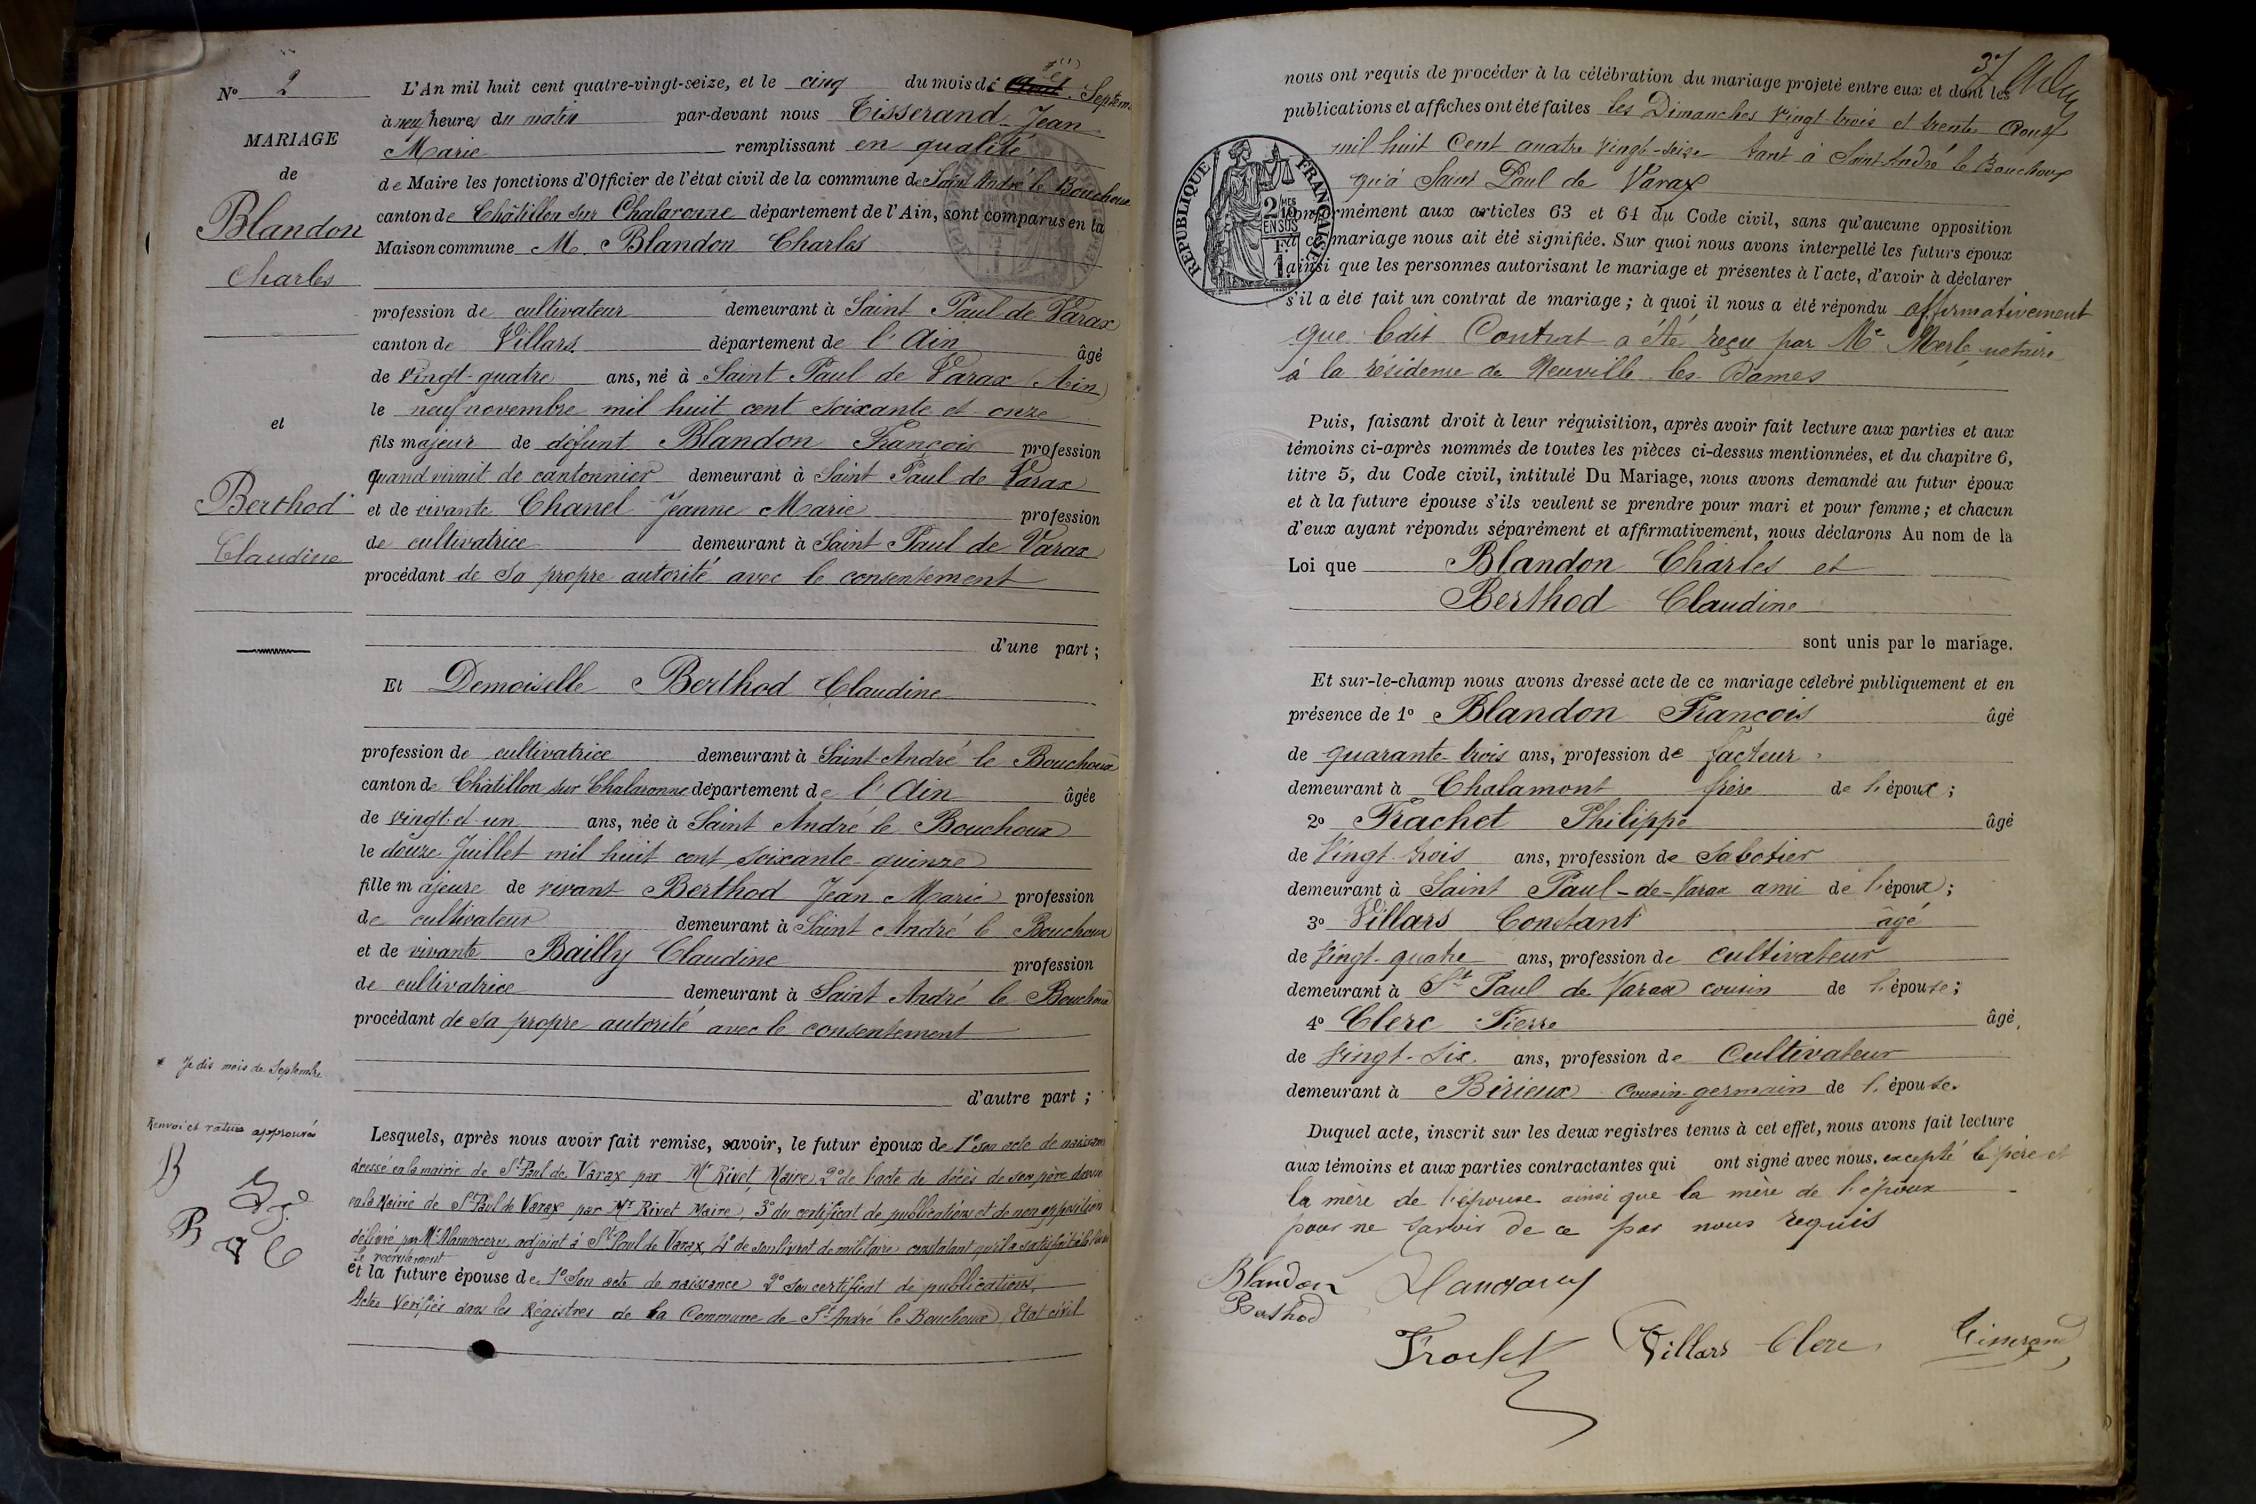 N° 2
MARIAGE
de
Blandon
Charles
et
Berthod
Claudine
* Je dis mois de Septembre
Renvoi et ratures approuvés
B
B
L'An mil huit cent quatre-vingt-seize, et le cinq du mois de Août Septem
à neuf heures du matin par-devant nous Tisserand Jean
Marie remplissant en qualité
de Maire les fonctions d'Officier de l'état civil de la commune de Saint André le Bouchoux
canton de Châtillon sur Chalaronne département de l'Ain, sont comparus en la
Maison commune M. Blandon Charles
profession de cultivateur demeurant à Saint Paul de Varax
canton de Villars département de l'Ain âgé
de vingt-quatre ans, né à Saint Paul de Varax (Ain)
le neuf novembre mil huit cent soixante et onze
fils majeur de défunt Blandon François profession
quand vivait de cantonnier demeurant à Saint Paul de Varax
et de vivante Chanel Jeanne Marie profession
de cultivatrice demeurant à Saint Paul de Varax
procédant de sa propre autorité avec le consentement
d'une part ;
Et Demoiselle Berthod Claudine
profession de cultivatrice demeurant à Saint-André le Bouchoux
canton de Châtillon sur Chalaronne département de l'Ain âgée
de vingt et un ans, née à Saint André le Bouchoux
le douze Juillet mil huit cent soixante-quinze
fille majeure de vivant Berthod Jean Marie profession
de cultivateur demeurant à Saint André le Bouchoux
et de vivante Bailly Claudine profession
de cultivatrice demeurant à Saint André le Bouchoux
procédant de sa propre autorité avec le consentement
d'autre part ;
Lesquels, après nous avoir fait remise, savoir, le futur époux de 1° son acte de naissance
dressé en la mairie de St Paul de Varax par Mr Rivet Maire, 2° de l'acte de décès de son père dressé
en la Mairie de St Paul de Varax par Mr Rivet Maire, 3° du certificat de publications et de non opposition
délivré par Mr adjoint à St Paul de Varax, 4° de son livret de militaire constatant qu'il a satisfait à la loi sur
le recrutement
et la future épouse de 1° Son acte de naissance 2° Son certificat de publications.
Actes Vérifiés dans les Régistres de la Commune de St André le Bouchoux, Etat civil
37
nous ont requis de procéder à la célébration du mariage projeté entre eux et dont les
publications et affiches ont été faites les Dimanches vingt-trois et trente Août
mil huit Cent quatre vingt-seize tant à Saint André le Bouchoux
qu'à Saint Paul de Varax
RÉPUBLIQUE FRANÇAISE
2 MES 10
EN SUS
1 F
conformément aux articles 63 et 64 du Code civil, sans qu'aucune opposition
à ce mariage nous ait été signifiée. Sur quoi nous avons interpellé les futurs époux
ainsi que les personnes autorisant le mariage et présentes à l'acte, d'avoir à déclarer
s'il a été fait un contrat de mariage ; à quoi il nous a été répondu affirmativement
que ledit Contrat a été reçu par Me Merle, notaire
à la résidence de Neuville les Dames
Puis, faisant droit à leur réquisition, après avoir fait lecture aux parties et aux
témoins ci-après nommés de toutes les pièces ci-dessus mentionnées, et du chapitre 6,
titre 5, du Code civil, intitulé Du Mariage, nous avons demandé au futur époux
et à la future épouse s'ils veulent se prendre pour mari et pour femme ; et chacun
d'eux ayant répondu séparément et affirmativement, nous déclarons Au nom de la
Loi que Blandon Charles et
Berthod Claudine
sont unis par le mariage.
Et sur-le-champ nous avons dressé acte de ce mariage célébré publiquement et en
présence de 1° Blandon François âgé
de quarante-trois ans, profession de facteur
demeurant à Chalamont frère de l'époux ;
2° Frachet Philippe âgé
de Vingt-trois ans, profession de Sabotier
demeurant à Saint Paul-de-Varax ami de l'époux ;
3° Villars Constant âgé
de Vingt-quatre ans, profession de cultivateur
demeurant à St Paul de Varax cousin de l'épouse ;
4° Clerc Pierre âgé
de Vingt-Six ans, profession de Cultivateur
demeurant à Birieux Cousin-germain de l'épouse.
Duquel acte, inscrit sur les deux registres tenus à cet effet, nous avons fait lecture
aux témoins et aux parties contractantes qui ont signé avec nous, excepté le père et
la mère de l'épouse ainsi que la mère de l'époux
pour ne savoir de ce par nous requis
Blandon Blandon
Berthod
Frachet Villars Clerc Tisserand